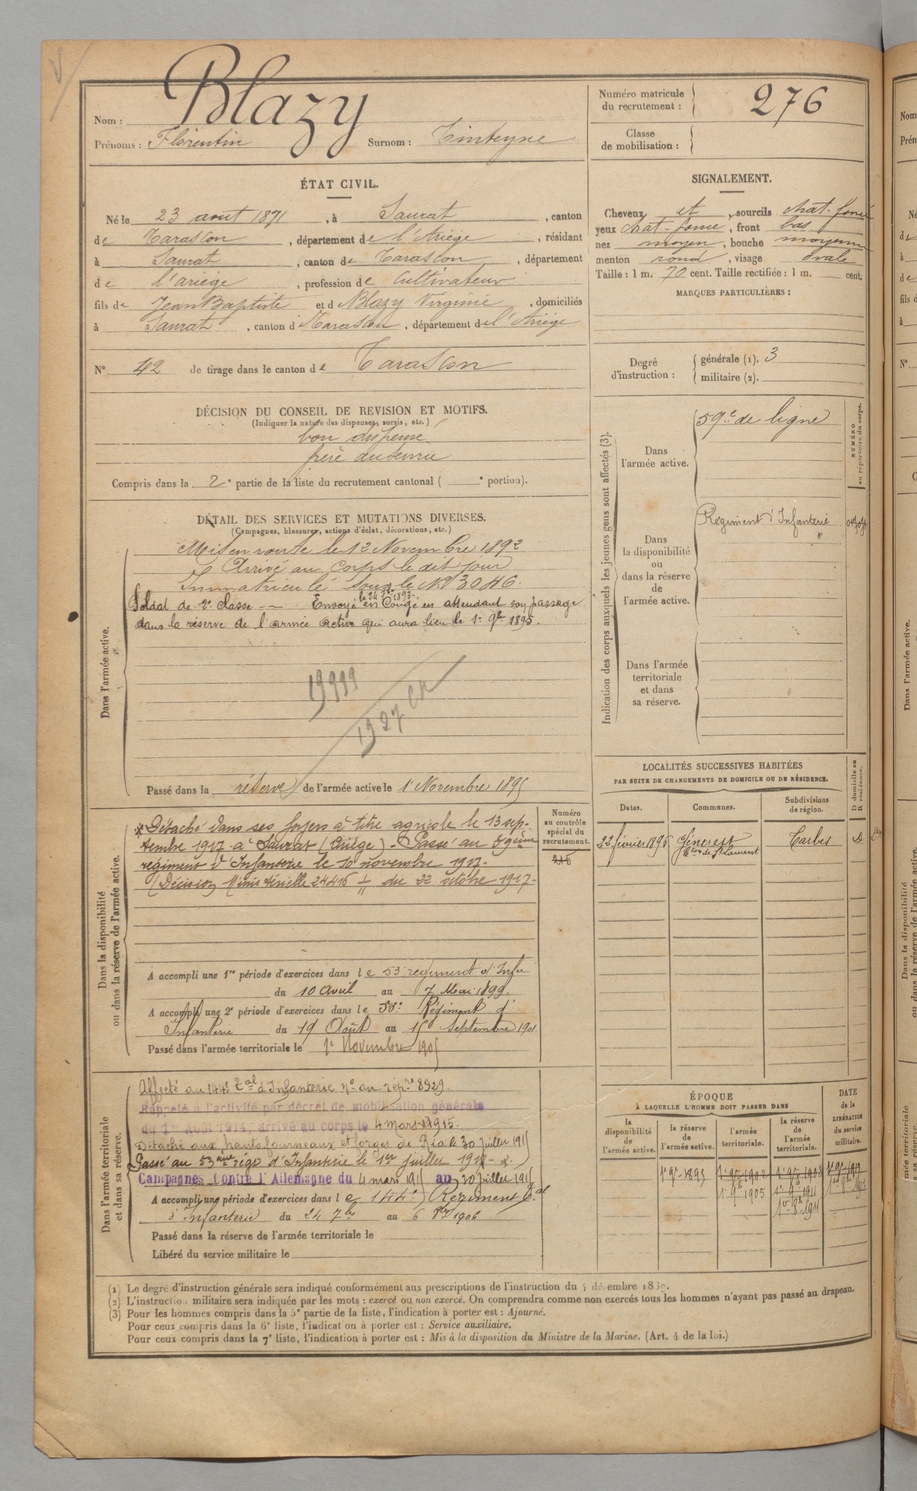 Nom : Blazy
Prénoms : Florentin Surnom :
Numéro matricule du recrutement : 276
Classe de mobilisation :
ÉTAT CIVIL.
Né le 23 aout 1871, à Saurat, canton
de Tarascon, département de l'Ariège, résidant
à Saurat, canton de Tarascon, département
de l'ariège, profession de Cultivateur
fils de Jean Baptiste et d Blazy Virginie, domiciliés
à Saurat, canton d Tarascon, département de l'Ariège
N° 42 de tirage dans le canton de Tarascon
SIGNALEMENT.
Cheveux et, sourcils chat. foncé
yeux chat-foncé, front bas
nez moyen, bouche moyenne
menton rond, visage ovale
Taille : 1 m. 70 cent. Taille rectifiée : 1 m. cent.
MARQUES PARTICULIÈRES :
Degré d'instruction : générale (1). 3
militaire (2).
DÉCISION DU CONSEIL DE REVISION ET MOTIFS.
(Indiquer la nature des dispenses, sursis, etc.)
bon dispensé
frère
Compris dans la 2e partie de la liste du recrutement cantonal ( e portion).
DÉTAIL DES SERVICES ET MUTATIONS DIVERSES.
(Campagnes, blessures, actions d'éclat, décorations, etc.)
Dans l'armée active.
Mis en route le 12 Novembre 1892
Arrivé au Corps le dit jour
Immatriculé sous le N° 3046.
Soldat de 2e classe — Envoyé en Congé en attendant son passage
dans la réserve de l'armée active qui aura lieu le 1er 9bre 1895.
Passé dans la réserve de l'armée active le 1er Novembre 1895
Indication des corps auxquels les jeunes gens sont affectés (3).
Dans l'armée active.
59e de ligne
Dans la disponibilité ou dans la réserve de l'armée active.
Régiment d'Infanterie
Dans l'armée territoriale et dans sa réserve.
NUMÉRO au répertoire du corps.
LOCALITÉS SUCCESSIVES HABITÉES
PAR SUITE DE CHANGEMENTS DE DOMICILE OU DE RÉSIDENCE.
Dates. Communes. Subdivisions de région. D. domicile ou R. résidence.
22 février 1896 Générest Con de St Laurent Tarbes D
Dans la disponibilité ou dans la réserve de l'armée active.
Numéro au contrôle spécial du recrutement.
Détaché dans ses foyers à titre agricole le 13 sep-
tembre 1917 à Saurat (Ariège) - Passé au 59ème
régiment d'Infanterie le 10 novembre 1917.
(Décision Ministérielle 24416 1/11 du 22 octobre 1917.
A accompli une 1re période d'exercices dans le 53 régiment d'Infie
du 10 avril au 7 Mai 1899.
A accompli une 2e période d'exercices dans le Régiment d'
Infanterie du 19 Août au 15 Septembre 1901
Passé dans l'armée territoriale le 1er Novembre 1905
Dans l'armée territoriale et dans sa réserve.
Affecté au 144e tal d'Infanterie n° au 8929.
Rappelé à l'activité par décret de mobilisation générale
du 1er Août 1914, arrivé au corps le 4 mars 1915.
Détaché aux hauts fourneaux et forges de Ria le 30 juillet 1915
Passé au 53ème rég. d'Infanterie le 1er juillet 1917.
Campagnes Contre l'Allemagne du 4 mars 1915 au 30 juillet 1915
A accompli une période d'exercices dans le 144e Régiment tal
d'Infanterie du 24 7bre au 6 8bre 1906
Passé dans la réserve de l'armée territoriale le
Libéré du service militaire le
ÉPOQUE
À LAQUELLE L'HOMME DOIT PASSER DANS
la disponibilité de l'armée active.
la réserve de l'armée active.
l'armée territoriale.
la réserve de l'armée territoriale.
DATE de la LIBÉRATION du service militaire.
1er 9bre 1895
1er 9bre 1905
(1) Le degré d'instruction générale sera indiqué conformément aux prescriptions de l'instruction du
(2) L'instruction militaire sera indiquée par les mots : exercé ou non exercé. On comprendra comme non exercés tous les hommes n'ayant pas passé au drapeau.
(3) Pour les hommes compris dans la 5e partie de la liste, l'indication à porter est : Ajourné.
Pour ceux compris dans la 6e liste, l'indication à porter est : Service auxiliaire.
Pour ceux compris dans la 7e liste, l'indication à porter est : Mis à la disposition du Ministre de la Marine. (Art. 4 de la loi.)